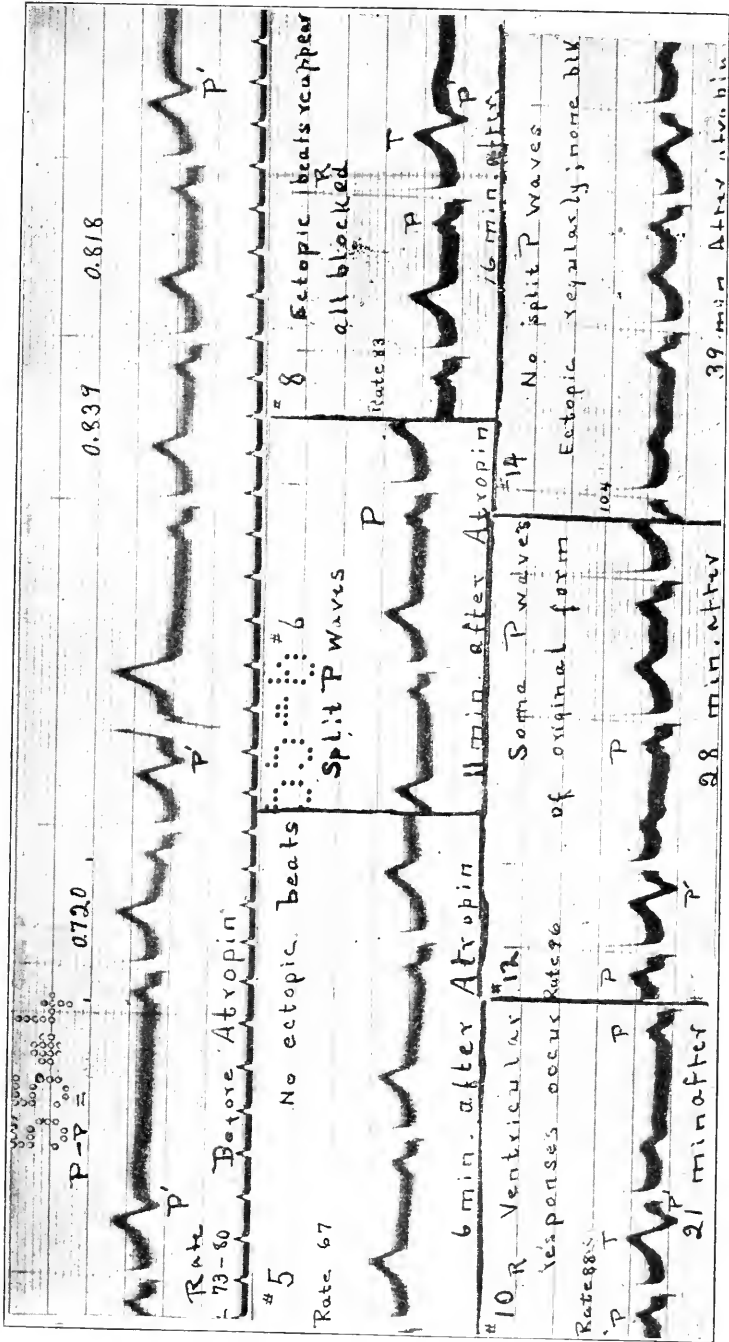 P-P = 0.720 0.839 0.818
P' P' P'
Rate
73-80
Before Atropin
#5 No ectopic beats
Rate 67
6 min. after Atropin
#6
Split P waves
P
11 min. after Atropin
#8 Ectopic beats reappear
all blocked
R
Rate 83
P T P'
16 min. after
#10 R Ventricular
responses occur
Rate 88
P T P' P
21 min after
#12 Some P waves
of original form
Rate 96
P P' P
28 min. after
#14 No split P waves
Ectopic regularly; none blk
104
39 min After atropin